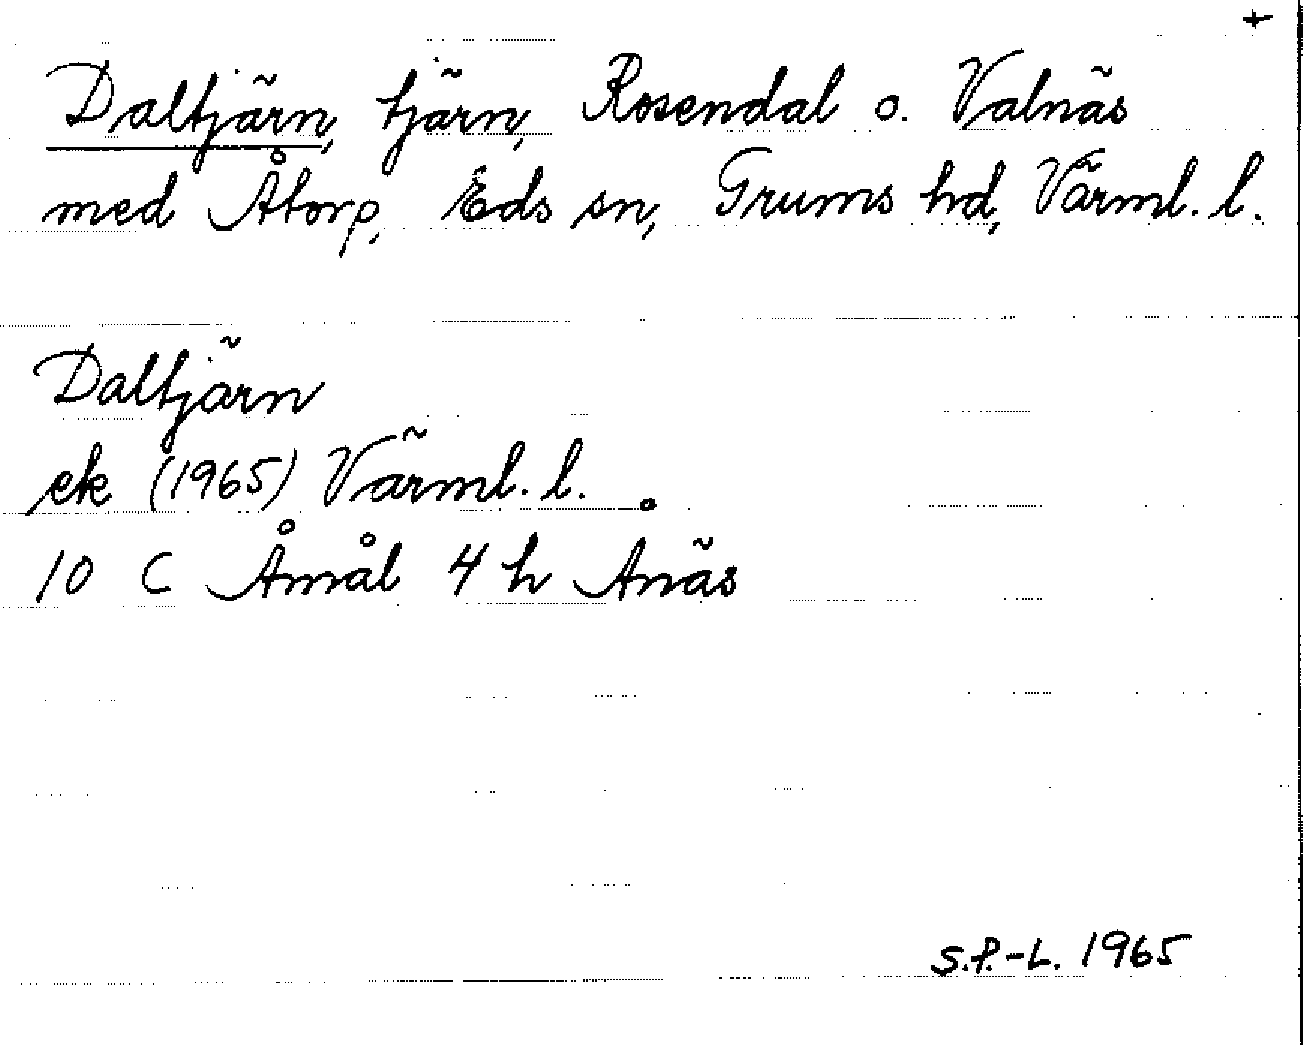 +
Daltjärn, tjärn, Rosendal o. Valnäs
med Åtorp, Eds sn, Grums hd, Värml. l.
Daltjärn
ek (1965) Värml. l.
10 C Åmål 4 h Ånäs
S.P.-L. 1965